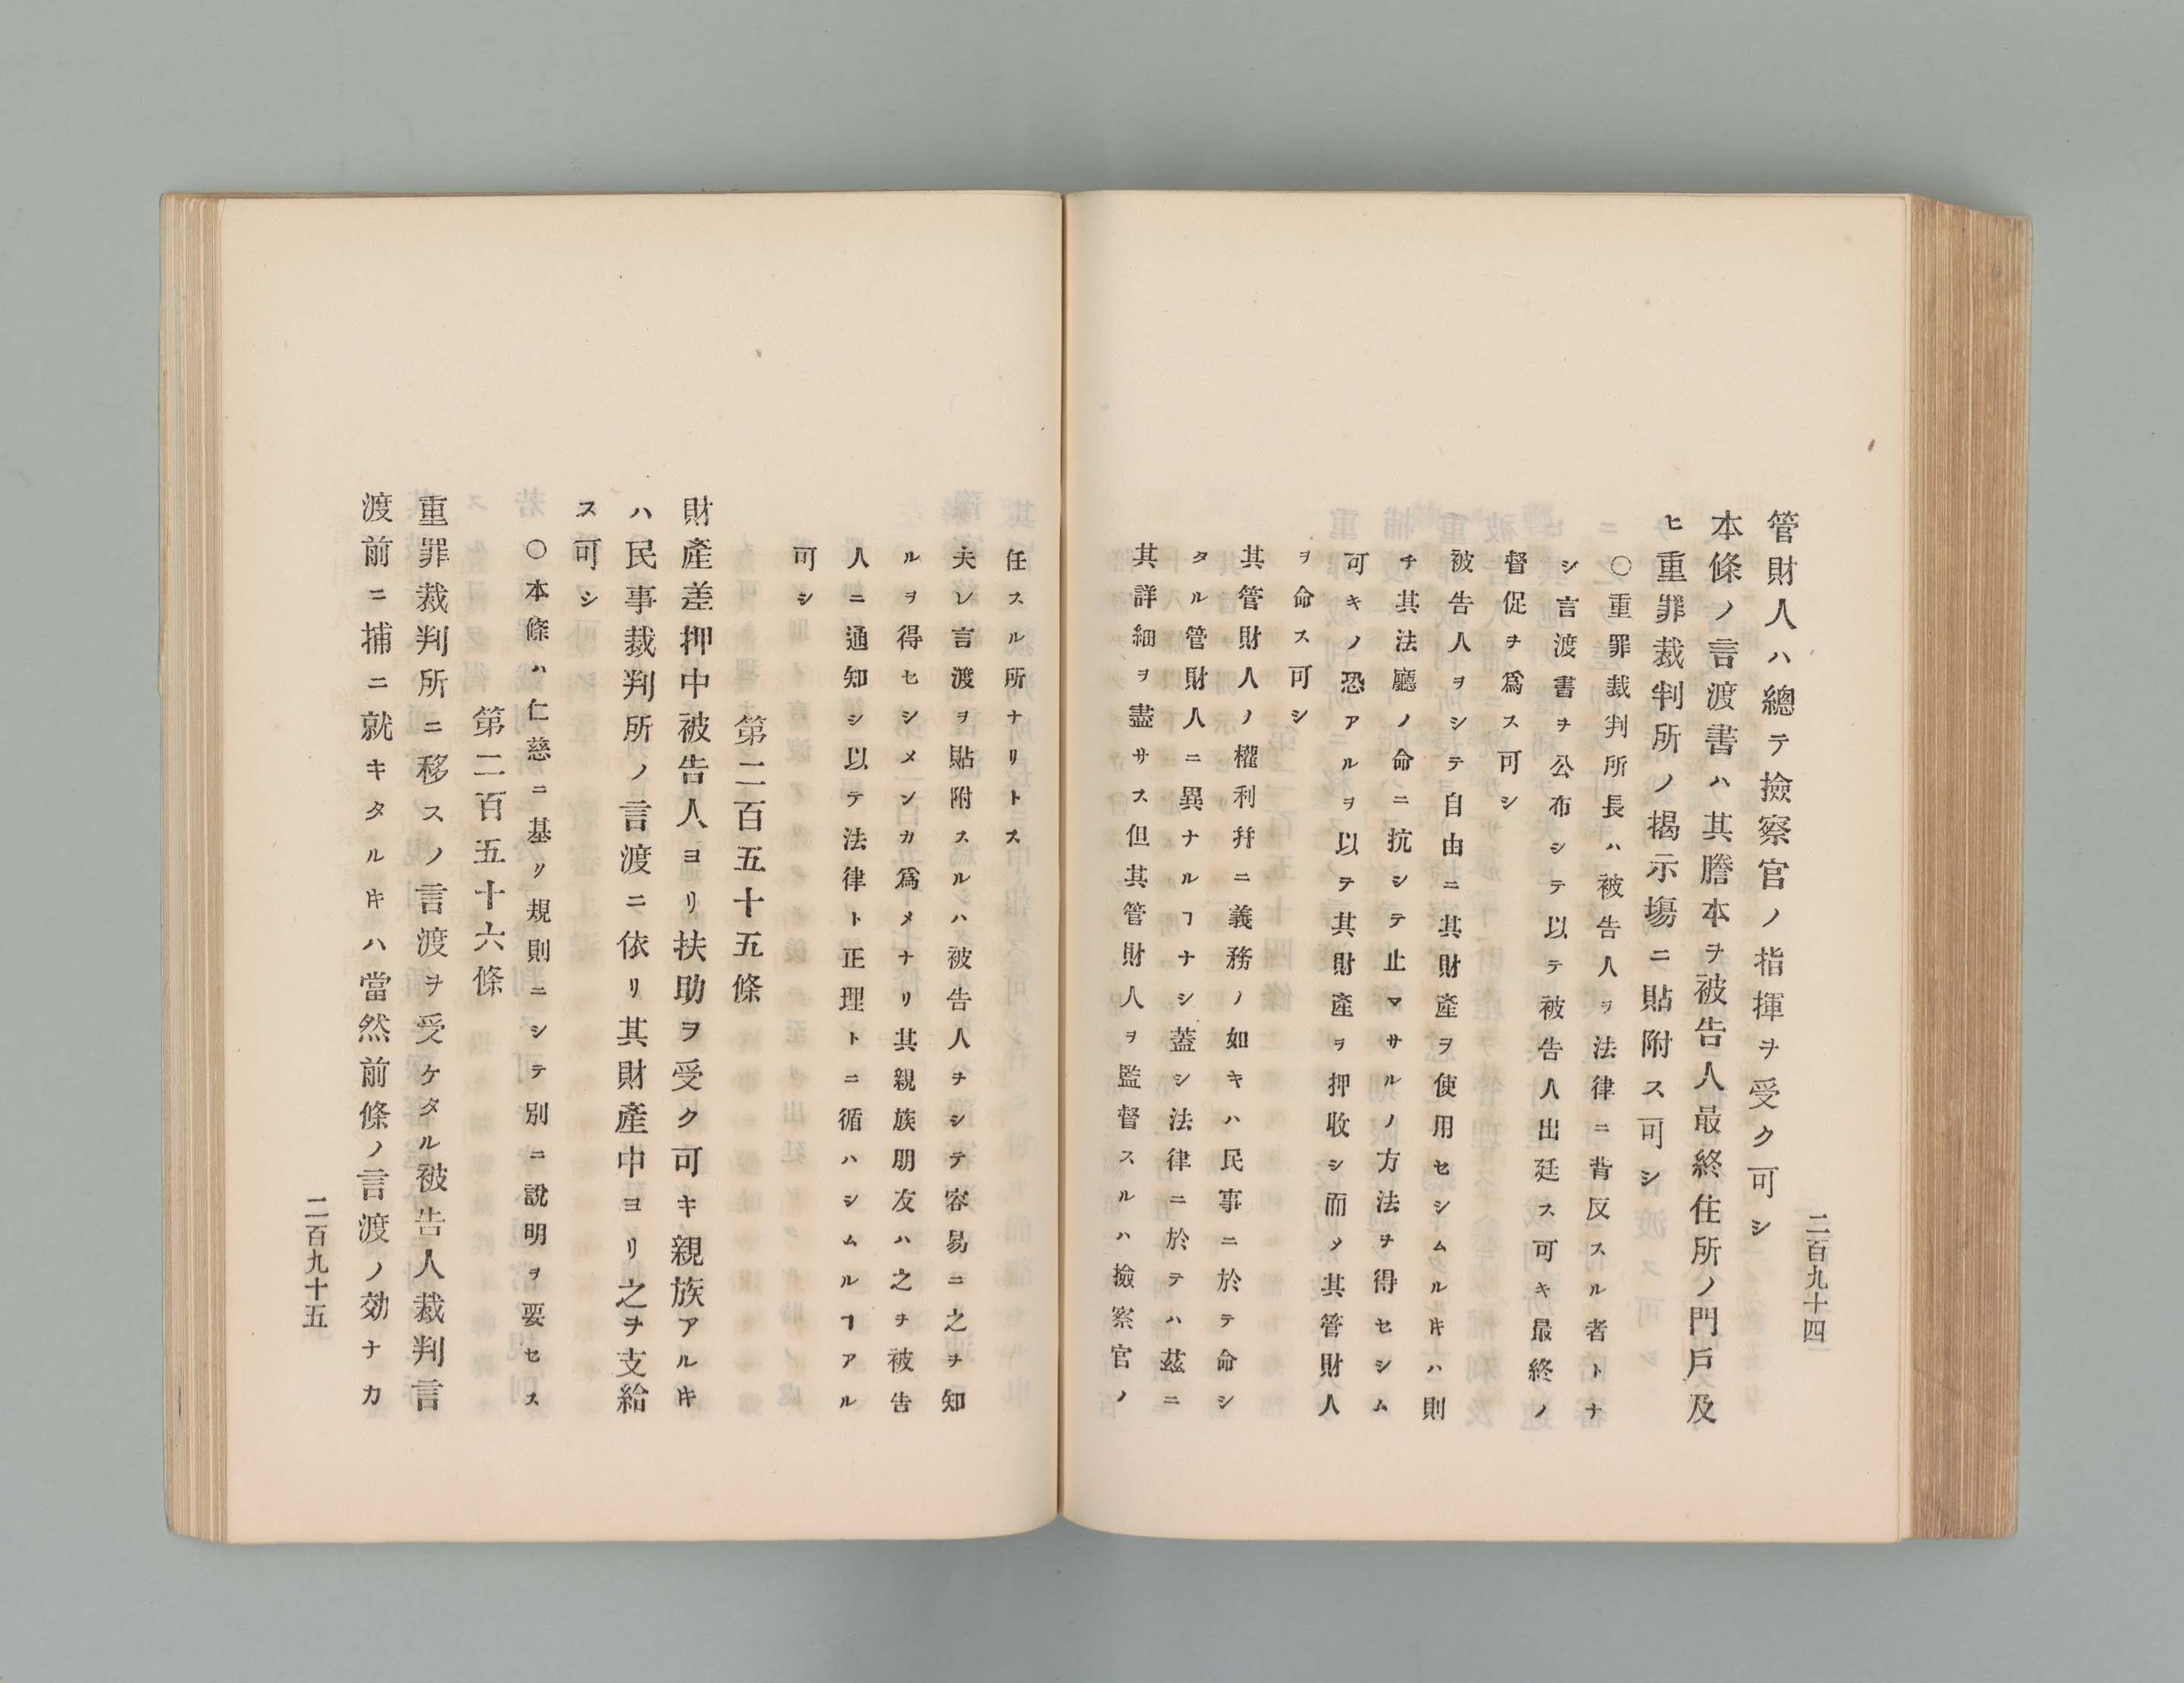 管財人ハ總テ撿察官ノ指揮ヲ受ク可シ
本條ノ言渡書ハ其謄本ヲ被告人最終住所ノ門戶及
ヒ重罪裁判所ノ揭示塲ニ貼附ス可シ
〇重罪裁判所長ハ被告人ヲ法律ニ背反スル者トナ
シ言渡書ヲ公布シテ以テ被告人出廷ス可キ最終ノ
督促ヲ爲ス可シ
被告人ヲシテ自由ニ其財產ヲ使用セシムルキハ則
チ其法廳ノ命ニ抗シテ止マサルノ方法ヲ得セシム
可キノ恐アルヲ以テ其財產ヲ押收シ而メ其管財人
ヲ命ス可シ
其管財人ノ權利幷ニ義務ノ如キハ民事ニ於テ命シ
タル管財人ニ異ナルヿナシ蓋シ法律ニ於テハ茲ニ
其詳細ヲ盡サス但其管財人ヲ監督スルハ撿察官ノ
二百九十四
任スル所ナリトス
夫レ言渡ヲ貼附スルハ被告人ヲシテ容易ニ之ヲ知
ルヲ得セシメンカ爲メナリ其親族朋友ハ之ヲ被告
人ニ通知シ以テ法律ト正理トニ循ハシムルヿアル
可シ
第二百五十五條
財產差押中被告人ヨリ扶助ヲ受ク可キ親族アルキ
ハ民事裁判所ノ言渡ニ依リ其財產中ヨリ之ヲ支給
ス可シ
〇本條ハ仁慈ニ基ク規則ニシテ別ニ說明ヲ要セス
第二百五十六條
重罪裁判所ニ移スノ言渡ヲ受ケタル被告人裁判言
渡前ニ捕ニ就キタルキハ當然前條ノ言渡ノ効ナカ
二百九十五